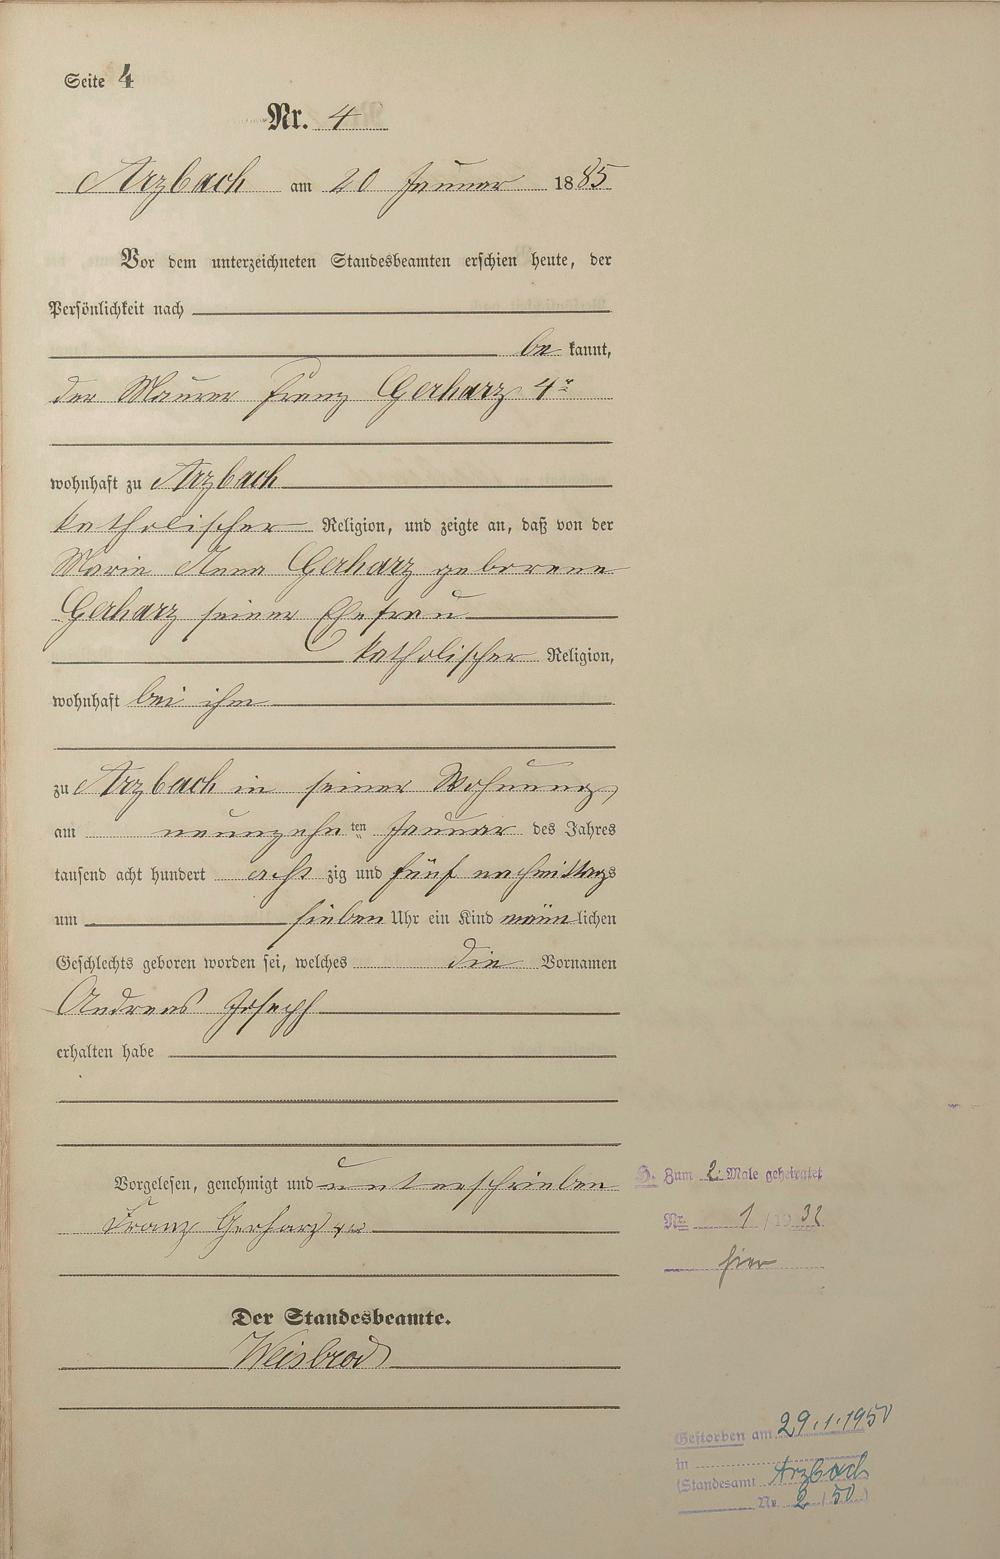 Seite 4
Nr. 4
Arzbach am 20 Januar 1885
Vor dem unterzeichneten Standesbeamten erschien heute, der
Persönlichkeit nach
be kannt,
der Maurer Franz Gerharz 4r
wohnhaft zu Arzbach
katholischer Religion, und zeigte an, daß von der
Maria Anna Gerharz geborene
Gerharz seiner Ehefrau
katholischer Religion,
wohnhaft bei ihm
zu Arzbach in seiner Wohnung,
am neunzehn ten Januar des Jahres
tausend acht hundert acht zig und fünf nachmittags
um sieben Uhr ein Kind männ lichen
Geschlechts geboren worden sei, welches die Vornamen
Andreas Joseph
erhalten habe
Vorgelesen, genehmigt und unterschrieben
Franz Gerharz
Der Standesbeamte.
Weisbrod
S. Zum 2. Male geheiratet
Nr. 1/1932
hier
Gestorben am 29.1.1950
in
(Standesamt Arzbach
Nr. 2/50)